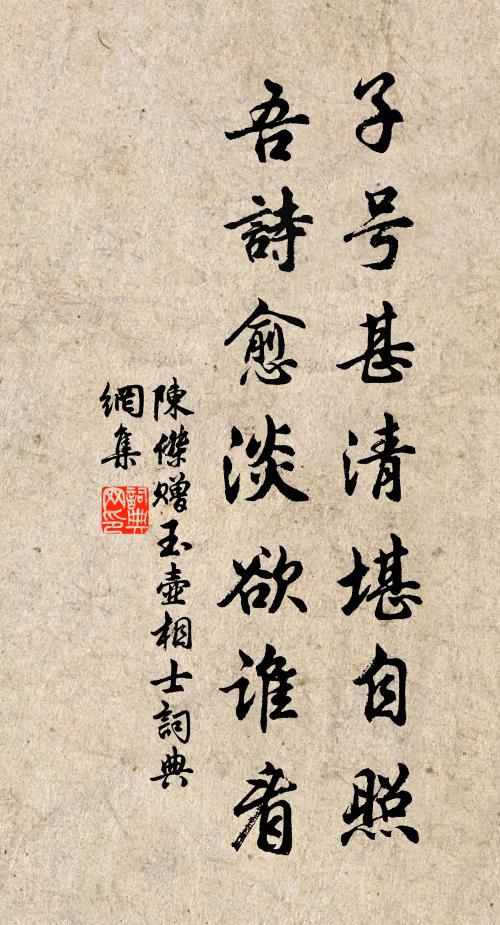 子号甚清堪自照
吾詩愈淡欲誰看
陳傑贈玉壺相士詞典
網集
詞典
网印